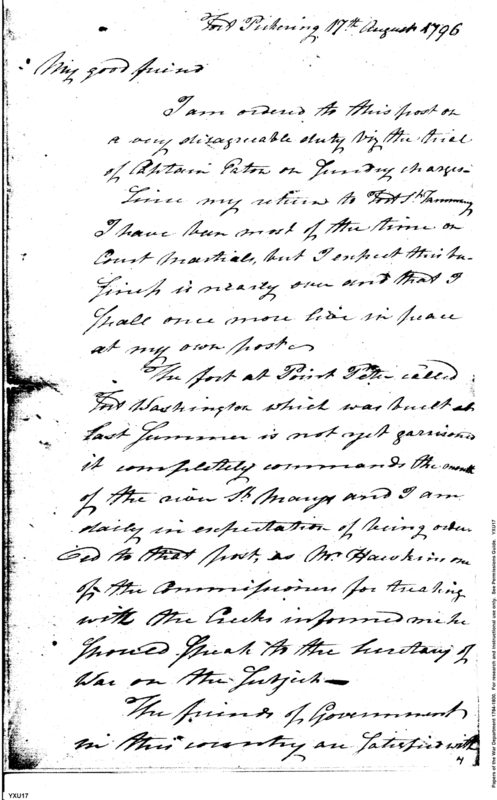 Fort Pickering 17th August 1796
My good friend
I am ordered to this post on
a very disagreeable duty viz the trial
of Captain Eaton on Sundry charges-
Since my return to Fort St Tammany
I have been most of the time on
Court Martials, but I expect this bu-
siness is nearly over and that I
shall once more live in peace
at my own post.
The fort at Point Peter called
Fort Washington which was built
last Summer is not yet garrisoned
it completely commands the mouth
of the river St Marys and I am
daily in expectation of being order
ed to that post, as Mr Hawkins one
of the Commissioners for treating
with the Creeks informed me he
should speak to the Secretary of
War on the Subject-
The friends of Government
in this country are Satisfied with
YXU17
Papers of the War Department 1784-1800. For research and instructional use only. See Permissions Guide. YXU17